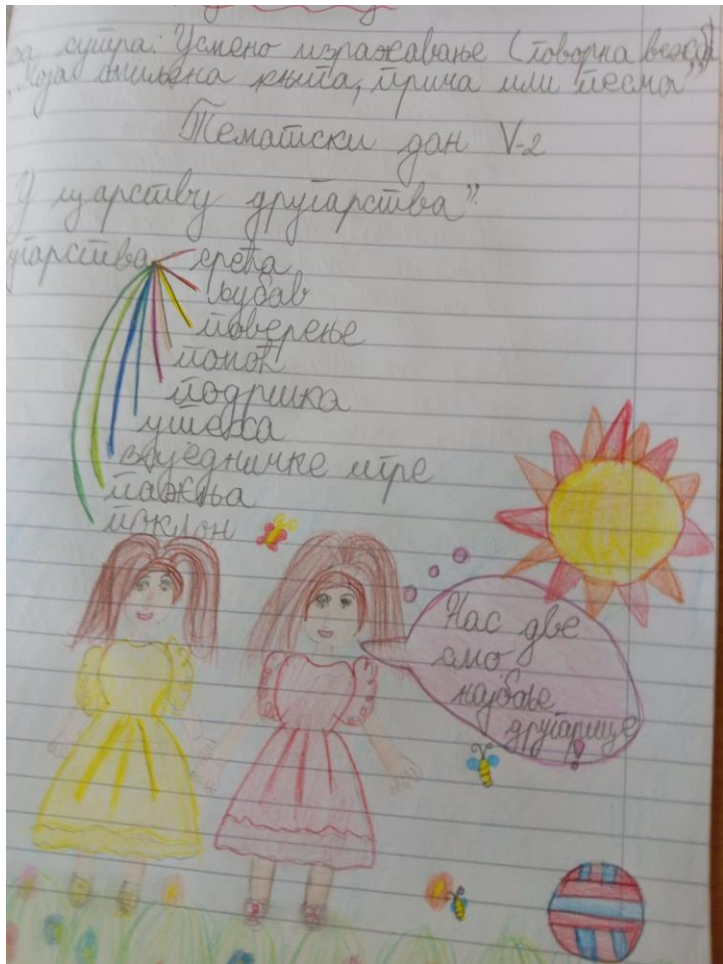 за сутра: Усмено изражавање (говорна вежба)
„Моја омиљена књига, прича или песма”
Тематски дан V-2
У царству другарства”
другарства
срећа
љубав
поверење
понос
подршка
утеха
заједничке игре
пажња
поклон
Нас две
смо
најбоље
другарице
!